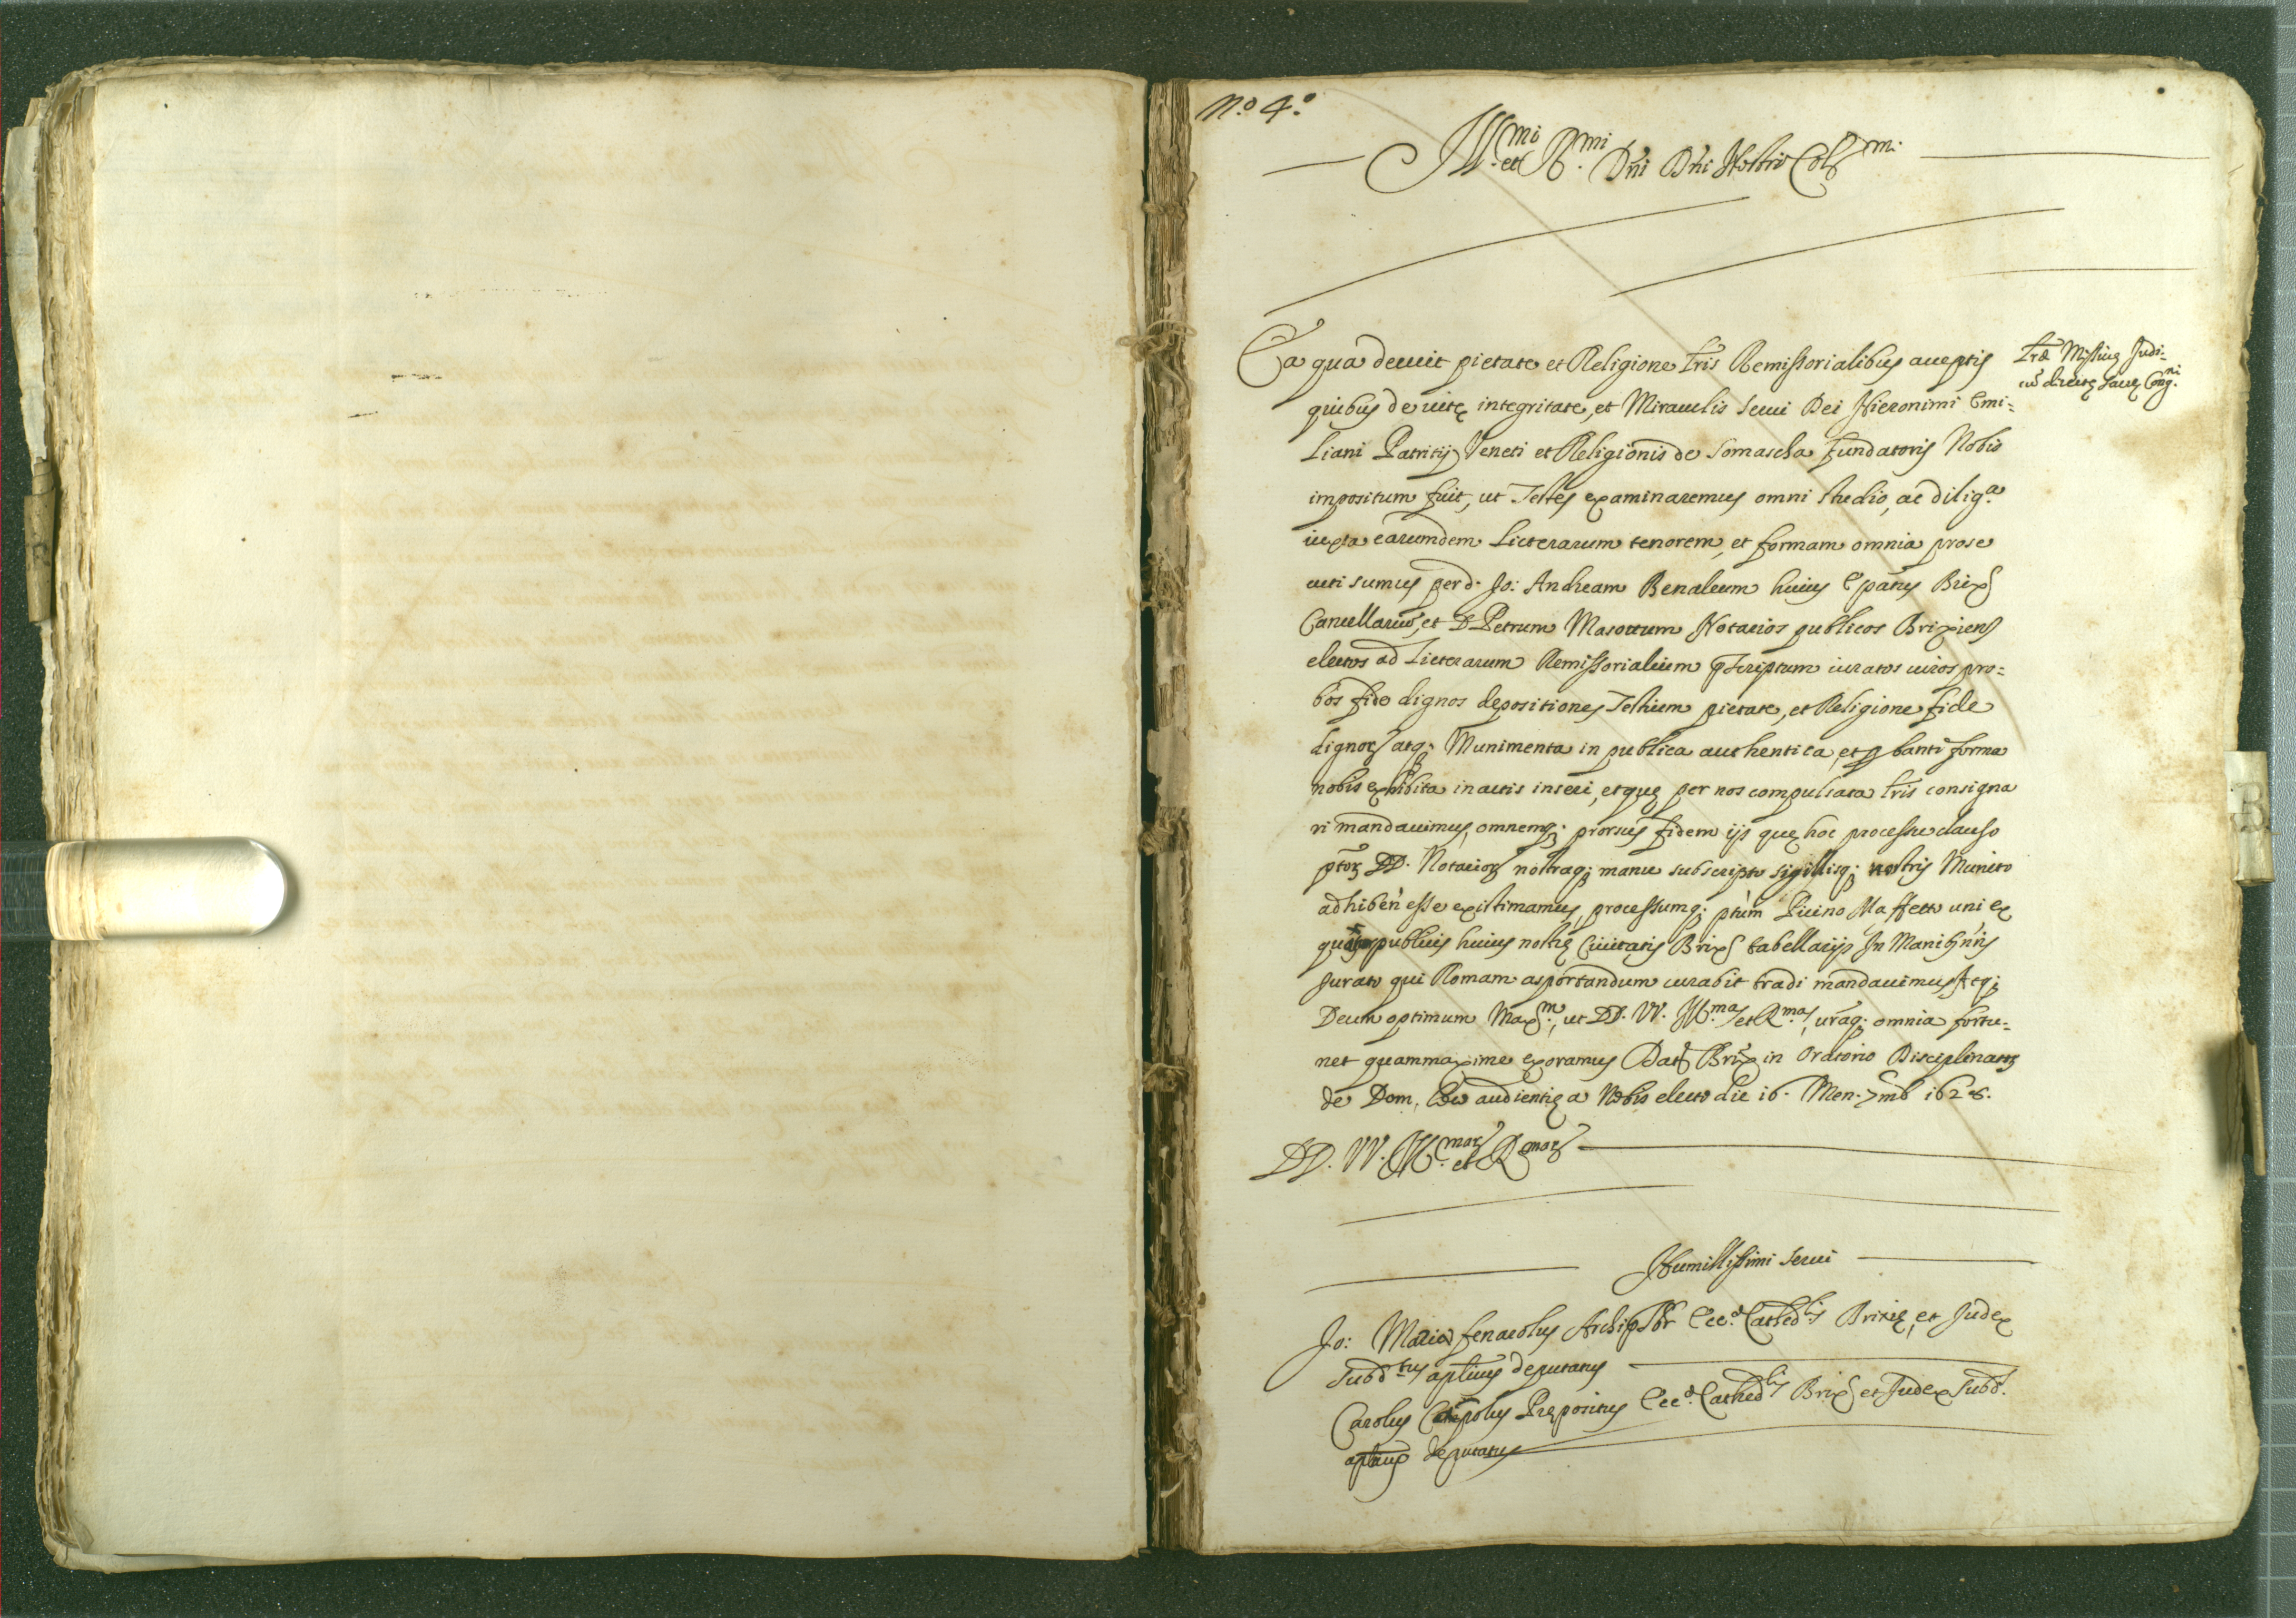 No. 4.o
Ill.mi et R.mi Dni Dni Nostri Col.mi
Ea qua decuit pietate et Religione lris Remissorialibus acceptis
quibus de vitę integritate, et Miraculis servi Dei Hieronimi Emi=
liani Patritij Veneti et Religionis de Somascha fundatoris Nobis
impositum fuit, ut Testes examinaremus omni studio, ac dilig.a
iuxta earumdem Litterarum tenorem, et formam omnia prose
cuti sumus per d. Jo: Andream Benaleum huius Epatus Brix
Cancellariũ, et D. Petrum Masottum Notarios publicos Brixiens
electos ad Litterarum Remissorialium pscriptum iuratos viros pro=
bos fide dignos depositiones Testium pietate, et Religione fide
dignor atq; Munimenta in publica authentica, et pbanti forma
nobis exhibita in actis inseri, et quę per nos compulsata lris consigna
ri mandavimus, omnemq; prorsus fidem ijs quę hoc processu clauso
ptor DD. Notarior nostraq; manu subscripto sigillisq; nostris Munito
adhiben esse existimamus, processumq; ptum Maffetto uni ex
publicis huius nostrę Civitatis Brix tabellarijs In Manib nris
Jurato qui Romam asportandum curabit tradi mandavimus
Deum optimum Max.m, ut DD. VV. Ill.mas et R.mas, uraq; omnia fortu=
net quammaxime exoramus Dat Brix in Oratorio Disciplinator
de Dom. Loco audientię a Nobis electo die 16. Men. 7mb
DD. VV. Ill.mar et R.mar
Humillissimi servi
Jo: Maria fenarolus Archipbr Ecc.ę Cathed.lis Brixię, et Judex
Subd.tus aplicus deputatus
Carolus Prępositus Ecc.ę Cathed.lis Brix et Judex Subd.
aplicus deputatus
Lrę Missivę Judi-
cũ directę Sacrę Cong.ni